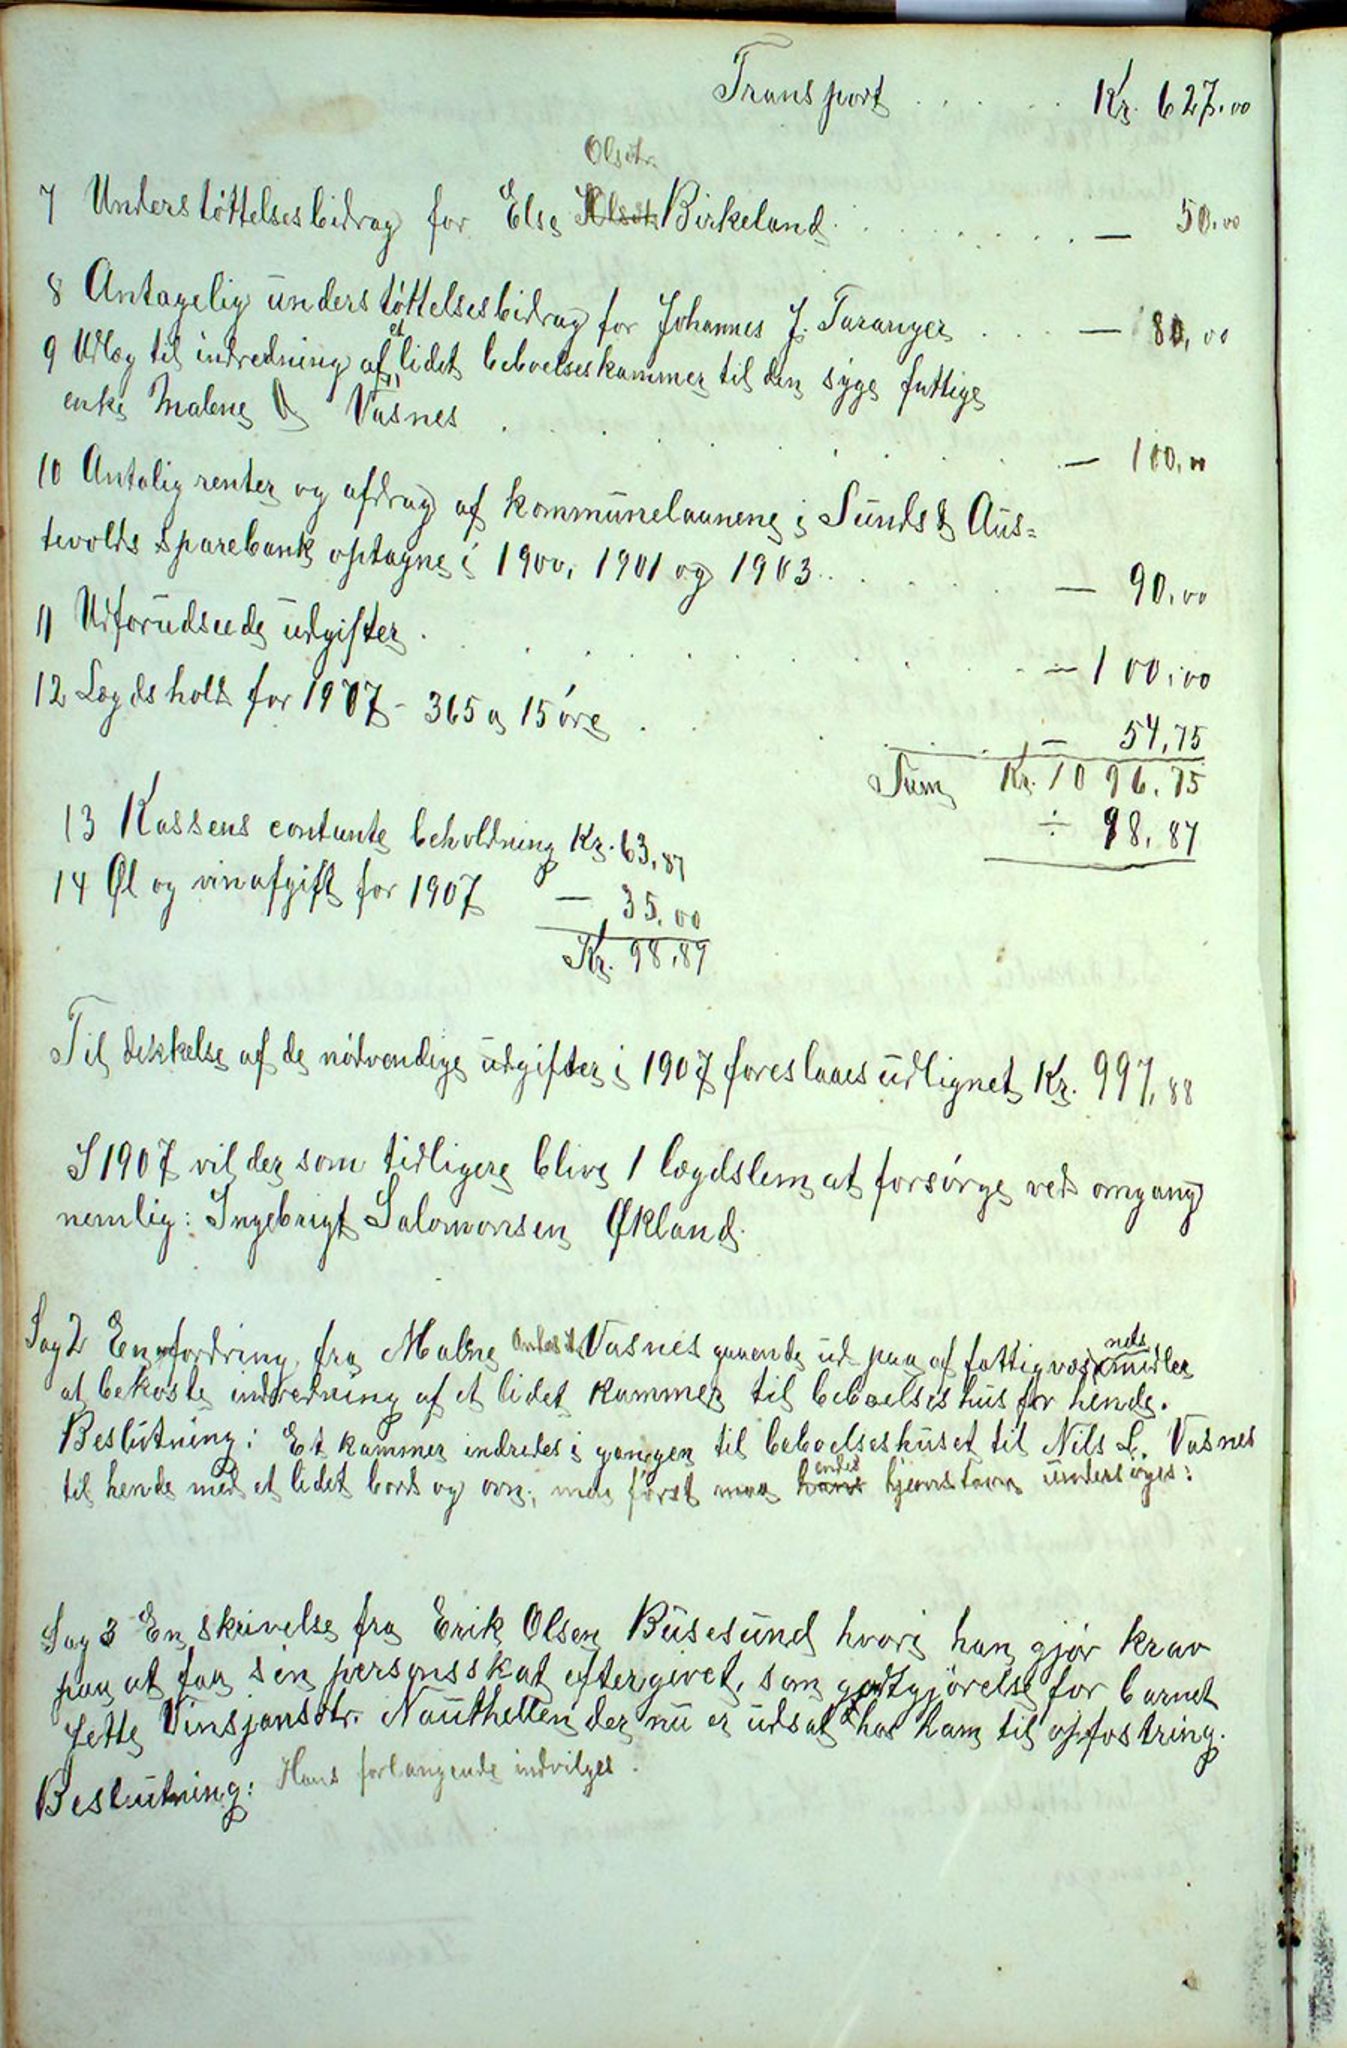 Transport . . . . . Kr. 627.00
Olsdtr.
7 Understøttelsesbidrag for Else Birkeland . . . . . . . . — 50.00
8 Antagelig understøttelsesbidrag for Johannes J. Taranger . . . — 80,00
9 Udlæg til indredning af et lidet beboelseskammer til den syge fattige
enke Malene Vasnes . . . . . . . . . — 100.00
10 Antalig renter og afdrag af kommunelaanene i Sunds & Aus=
tevolds Sparebank optagne i 1900, 1901 og 1903 . . . . — 90.00
11 Uforudseede udgifter . . . . . . . . . — 100.00
12 Lægdshold for 1907 - 365 a 15 øre . . . . — 54,75
Sum Kr. 1096.75
13 Kassens contante beholdning Kr. 63,87 ÷ 98,87
14 Øl og vinafgift for 1907 — 35,00
Kr. 98,87
Til dekkelse af de nødvendige udgifter i 1907 foreslaaes udlignet Kr. 997,88
I 1907 vil der som tidligere blive 1 lægdslem at forsørge ved omgang
nemlig: Ingebrigt Salomonsen Økland.
Sag 2 En anfordring fra Malene Vasnes gaaende ud paa af fattigvæsnets midler
at bekoste indredning af et lidet kammer til beboelseshus for hende.
Beslutning: Et kammer indredes i gangen til beboelseshuset til Nils L. Vasnes
til hende med et lidet bord og ovn; men først maa hans endes hjemstavn undersøges:
Sag 3 En skrivelse fra Erik Olsen Busesund hvori han gjør krav
paa at faa sin personsskat eftergivet, som godtgjørelse for barnet
Jette Vinsjansdtr. Nauthellen der nu er udsat hos ham til opfostring.
Beslutning: Hans forlangende indvilges.